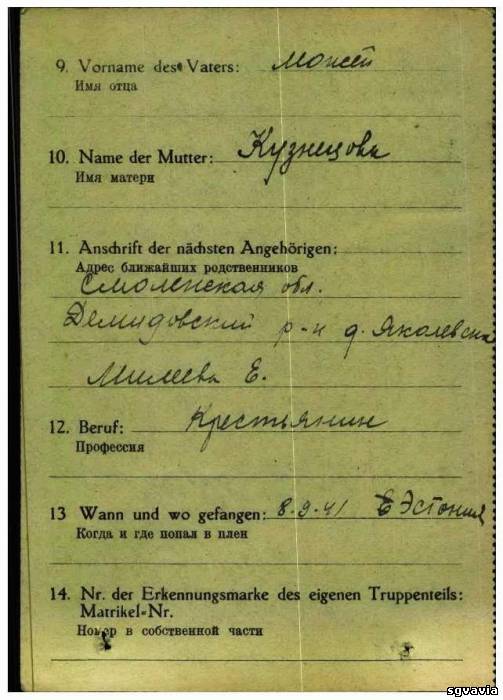 9. Vorname des Vaters: Моисей
Имя отца
10. Name der Mutter: Кузнецова
Имя матери
11. Anschrift der nächsten Angehörigen:
Адрес ближайших родственников
Смоленская обл.
Демидовский р-н д. Яколевска
Милеева Е.
12. Beruf: Крестьянин
Профессия
13 Wann und wo gefangen: 8.9.41 Эстония
Когда и где попал в плен
14. Nr. der Erkennungsmarke des eigenen Truppenteils:
Matrikel=Nr.
Номер в собственной части
sgvavia